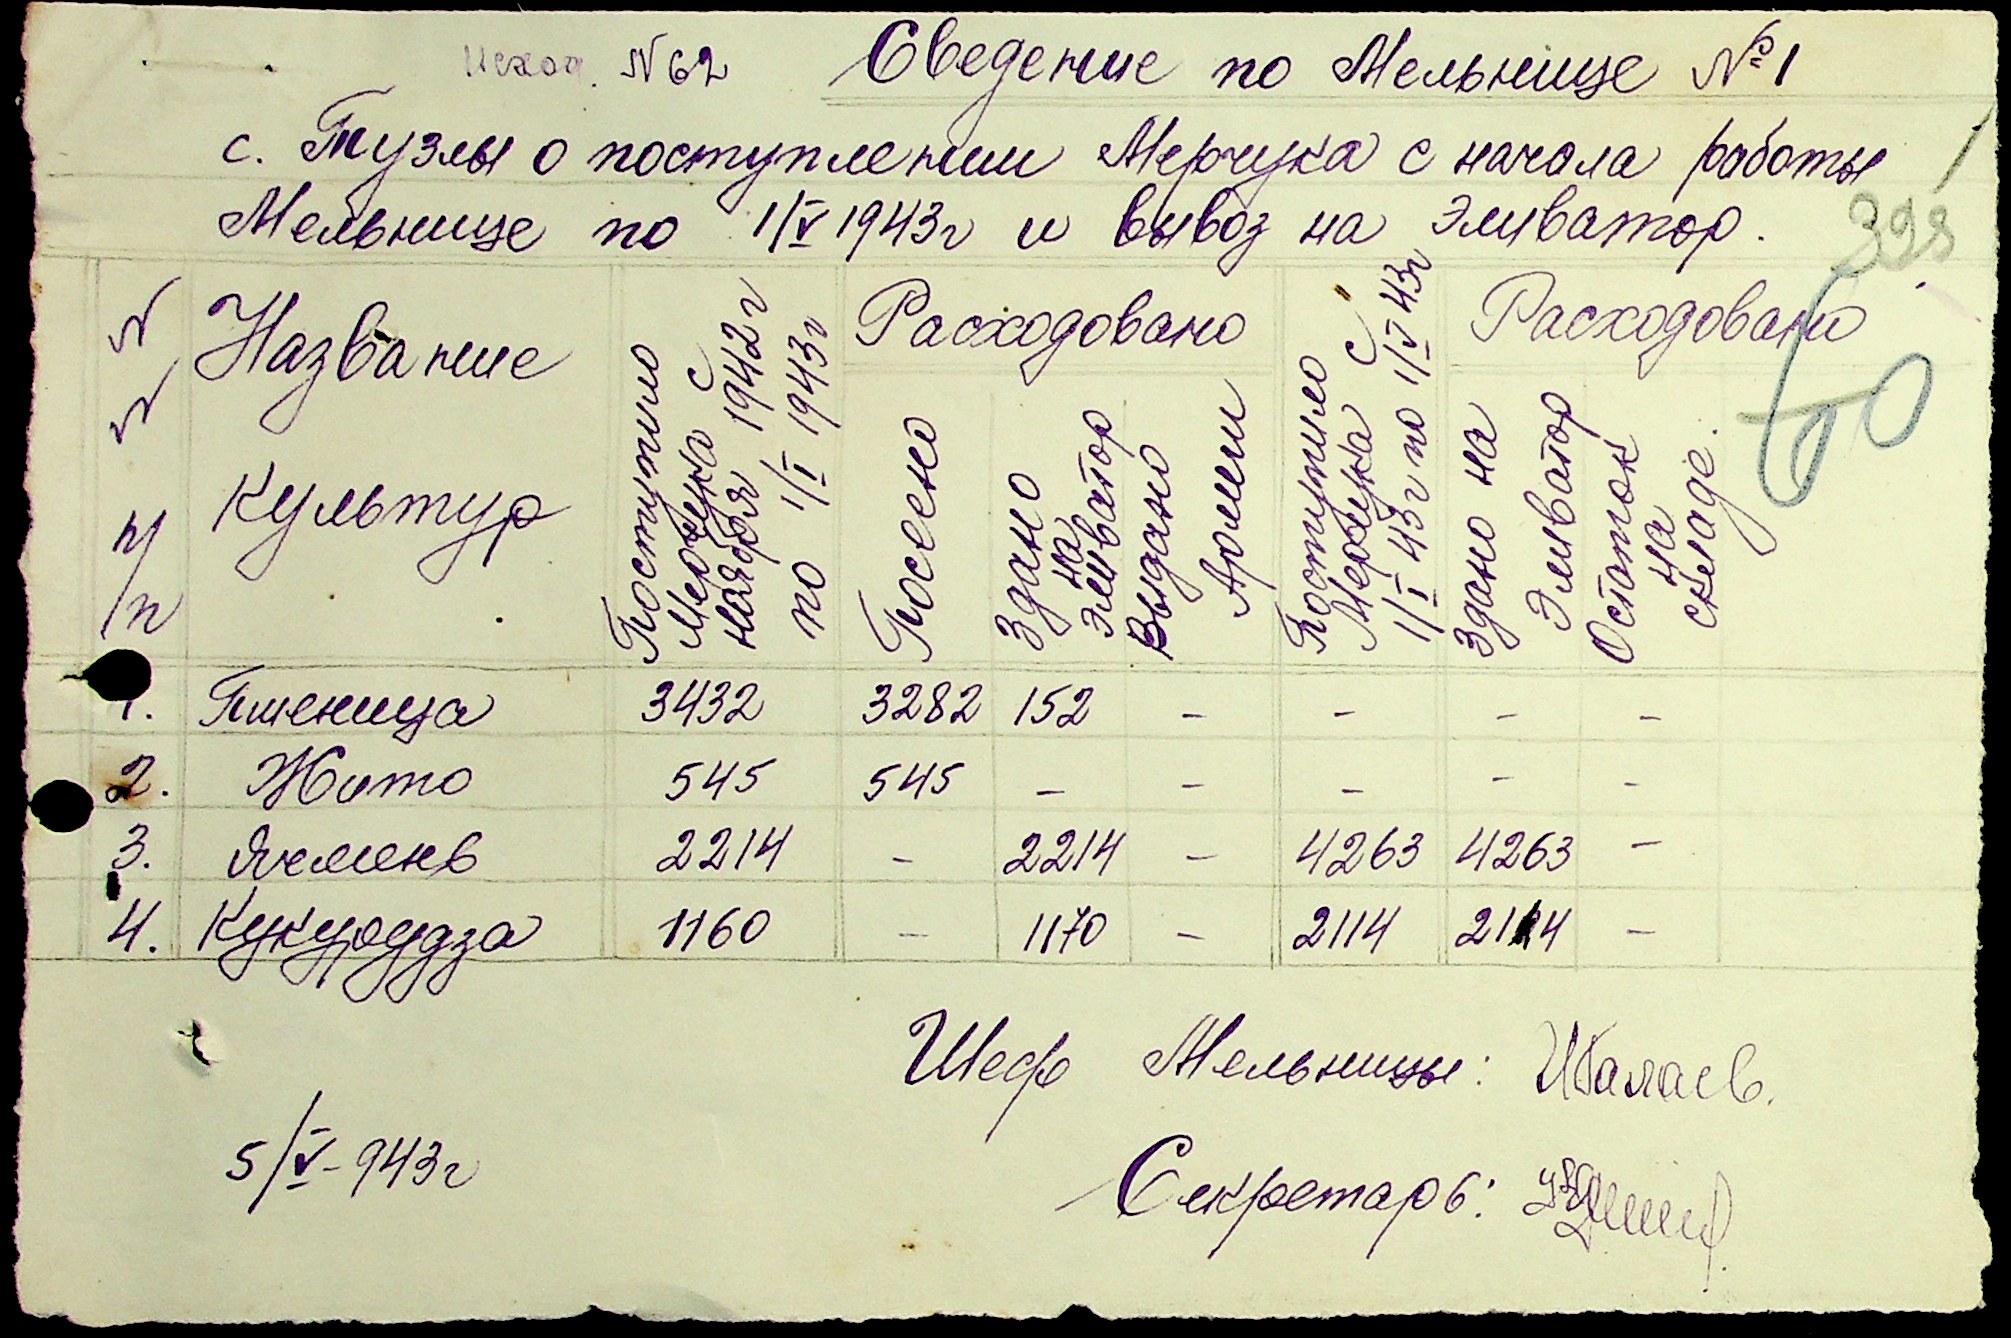 Исход. N 62 Сведение по Мельнице № 1
с. Тузлы о поступлении Мерчука с начала работы
Мельнице по 1/V 1943г и вывоз на Эливатор.
328
60
N N п/п
Название
культур
Поступило
Мерчука с
ноября 1942г
по 1/I 1943г
Расходовано
Посеено
Здано
на
Эливатор
Выдано
Армии
Поступило
Мерчука с
1/I 43г по 1/V 43г
Расходовано
Здано на
Эливатор
Остаток
на
складе.
1. Пшеница 3432 3282 152 - - - -
2. Жито 545 545 - - - - -
3. Ячмень 2214 - 2214 - 4263 4263 -
4. Кукурудза 1160 - 1170 - 2114 2114 -
Шеф Мельницы:
5/V-943г
Секретарь: